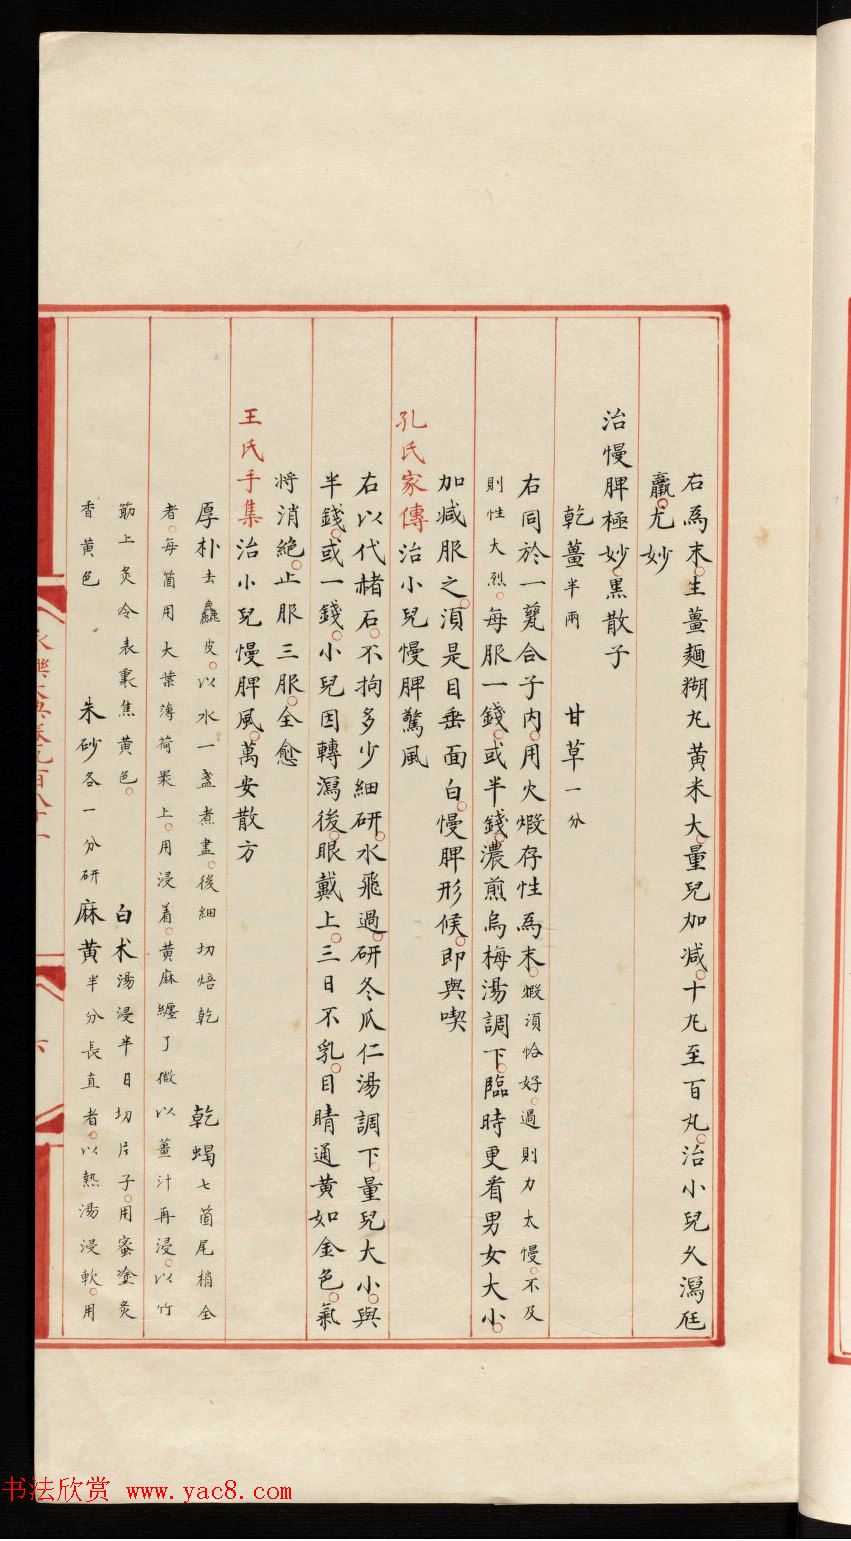 右爲末。生薑麵糊丸黃米大。量兒加減。十丸至百丸。治小兒久瀉尫
羸。尤妙
治慢脾極妙。黑散子
乾薑半兩 甘草一分
右同於一甆合子内。用火煅存性爲末。煅須恰好。過則力太慢。不及
則性大烈。每服一錢。或半錢。濃煎烏梅湯調下。臨時更看男女大小。
加減服之。須是目垂面白。慢脾形候。即與喫
孔氏家傳治小兒慢脾驚風
右以代赭石。不拘多少細研。水飛過。研冬瓜仁湯調下。量兒大小。與
半錢。或一錢。小兒因轉瀉後。眼戴上。三日不乳。目睛通黃如金色。氣
将消絶。止服三服。全愈
王氏手集治小兒慢脾風。萬安散方
厚朴去麄皮。以水一盞煮盡。後細切焙乾 乾蝎七箇尾梢全
者。每箇用大葉薄荷裹上。用浸着。黃麻纏了微以薑汁再浸。以竹
筯上炙令表裏焦黃色。 白术湯浸半日切片子。用蜜塗炙
香黃色 朱砂各一分研 麻黃半分長直者。以熱湯浸軟。用
永樂大典卷九百八十一
六
书法欣赏 www.yac8.com